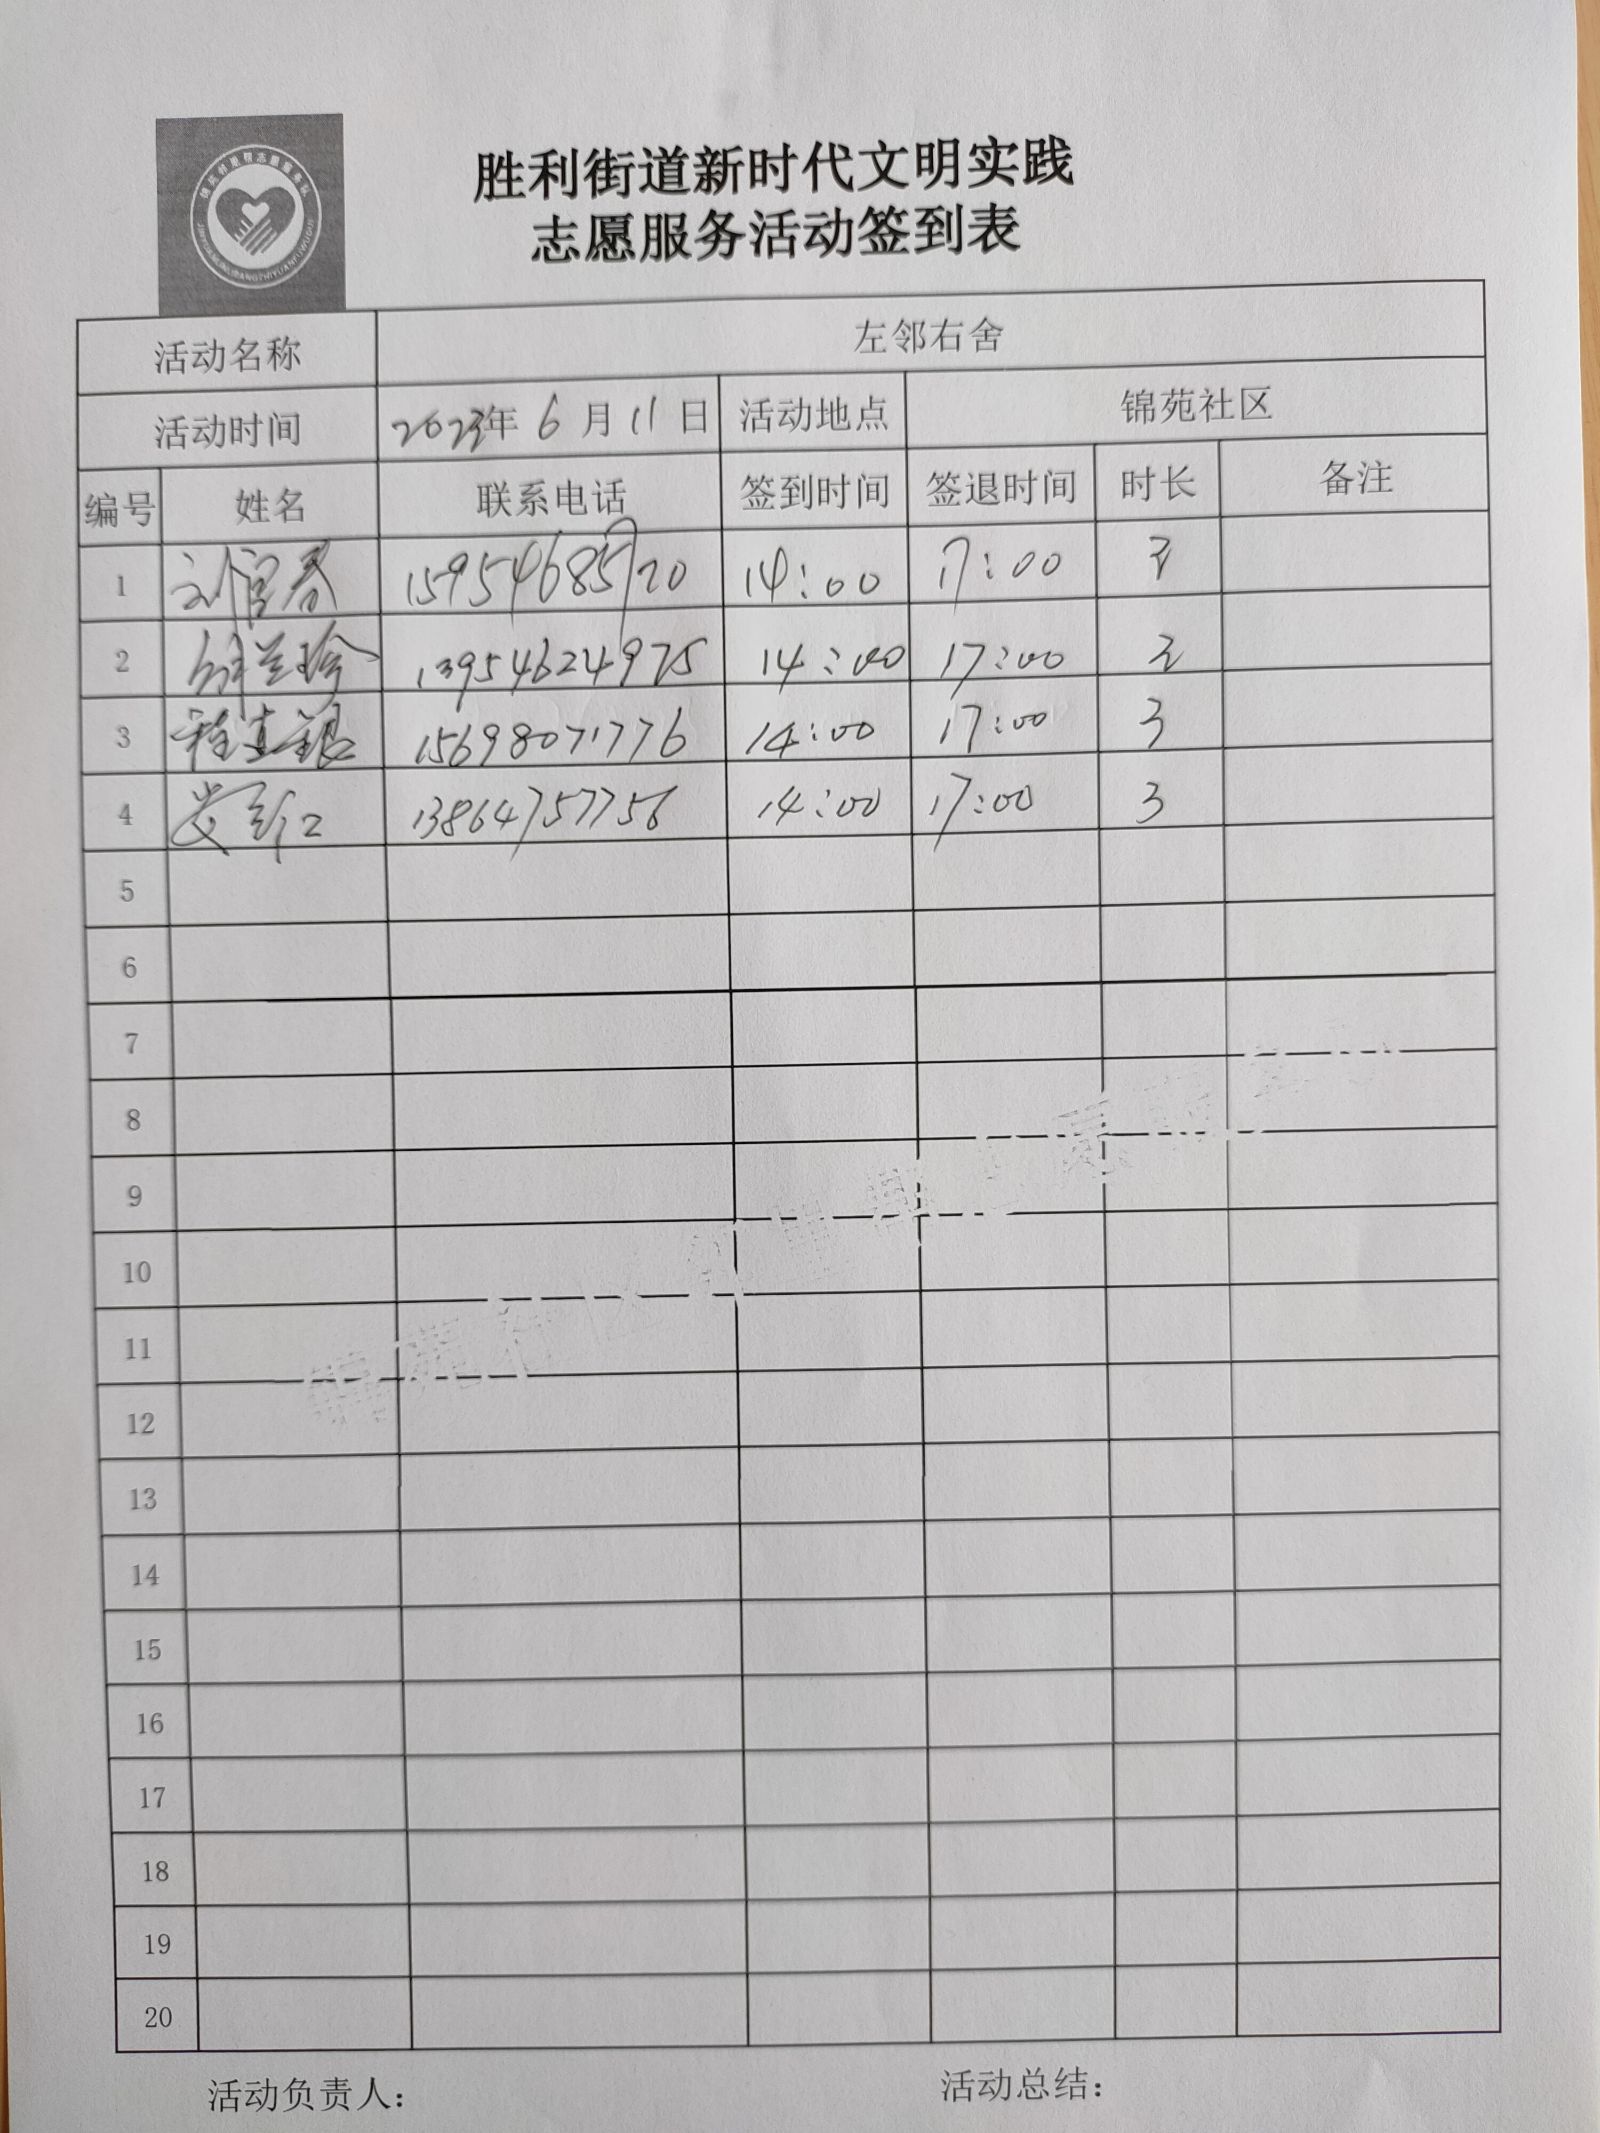 胜利街道新时代文明实践
志愿服务活动签到表
活动名称 左邻右舍
活动时间 2023年 6 月 11 日 活动地点 锦苑社区
编号 姓名 联系电话 签到时间 签退时间 时长 备注
1 刘官春 15954685720 14:00 17:00 3
2 13954624975 14:00 17:00 3
3 程建银 15698071776 14:00 17:00 3
4 娄彩红 13864757756 14:00 17:00 3
5
6
7
8
9
10
11
12
13
14
15
16
17
18
19
20
活动负责人： 活动总结：